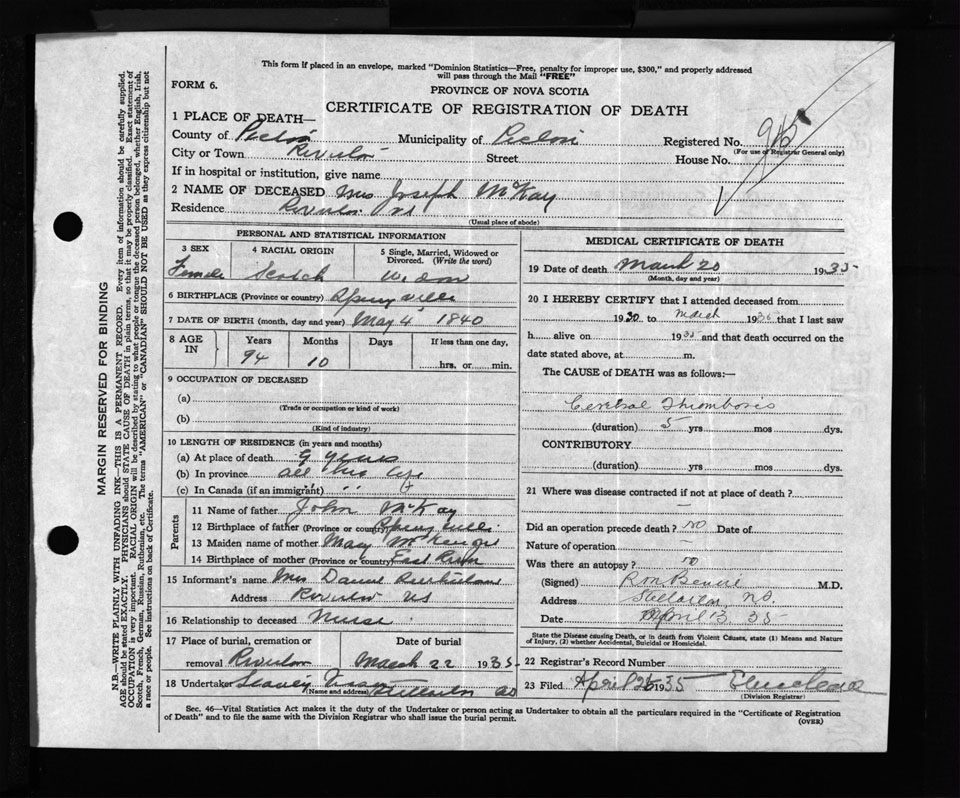 This form if placed in an envelope, marked "Dominion Statistics—Free, penalty for improper use, $300," and properly addressed
will pass through the Mail "FREE"
FORM 6.
PROVINCE OF NOVA SCOTIA
CERTIFICATE OF REGISTRATION OF DEATH
1 PLACE OF DEATH—
County of Pictou Municipality of Pictou Registered No. 915
(For use of Registrar General only)
City or Town Street House No.
If in hospital or institution, give name
2 NAME OF DECEASED Mrs Joseph McKay
Residence NS
(Usual place of abode)
PERSONAL AND STATISTICAL INFORMATION
3 SEX 4 RACIAL ORIGIN 5 Single, Married, Widowed or
Divorced. (Write the word)
Female Scotch Widow
6 BIRTHPLACE (Province or country) Spring Ville
7 DATE OF BIRTH (month, day and year) May 4 1840
8 AGE IN Years Months Days If less than one day,
94 10 hrs. or min.
9 OCCUPATION OF DECEASED
(a)
(Trade or occupation or kind of work)
(b)
(Kind of industry)
10 LENGTH OF RESIDENCE (in years and months)
(a) At place of death 9 years
(b) In province all his life
(c) In Canada (if an immigrant) " "
Parents
11 Name of father John McKay
12 Birthplace of father (Province or country) Spring Ville
13 Maiden name of mother Mary McKenzie
14 Birthplace of mother (Province or country) East River
15 Informant's name Mrs Daniel
Address NS
16 Relationship to deceased Nurse
17 Place of burial, cremation or Date of burial
removal March 22 1935
18 Undertaker
(Name and address)
MEDICAL CERTIFICATE OF DEATH
19 Date of death March 20 1935
(Month, day and year)
20 I HEREBY CERTIFY that I attended deceased from
1930 to March 1935 that I last saw
h alive on 1935 and that death occurred on the
date stated above, at m.
The CAUSE of DEATH was as follows:—
Cerebral Thrombosis
(duration) 5 yrs mos dys.
CONTRIBUTORY
(duration) yrs mos dys.
21 Where was disease contracted if not at place of death?
—
Did an operation precede death? No Date of
Nature of operation —
Was there an autopsy? no
(Signed) M.D.
Address Stellarton, N.S.
Date April 13 35
State the Disease causing Death, or in death from Violent Causes, state (1) Means and Nature
of Injury, (2) whether Accidental, Suicidal or Homicidal.
22 Registrar's Record Number
23 Filed April 26 35
(Division Registrar)
Sec. 46—Vital Statistics Act makes it the duty of the Undertaker or person acting as Undertaker to obtain all the particulars required in the "Certificate of Registration
of Death" and to file the same with the Division Registrar who shall issue the burial permit.
(OVER)
MARGIN RESERVED FOR BINDING
N.B.—WRITE PLAINLY WITH UNFADING INK—THIS IS A PERMANENT RECORD. Every item of information should be carefully supplied.
AGE should be stated EXACTLY. PHYSICIANS should STATE CAUSE OF DEATH in plain terms, so that it may be properly classified. Exact statement of
OCCUPATION is very important. RACIAL ORIGIN will be described by stating to what people or tongue the deceased person belonged, whether English, Irish,
Scotch, French, German, Russian, Ruthenian, etc. The terms "AMERICAN" or "CANADIAN" SHOULD NOT BE USED as they express citizenship but not
a race or people. See instructions on back of Certificate.